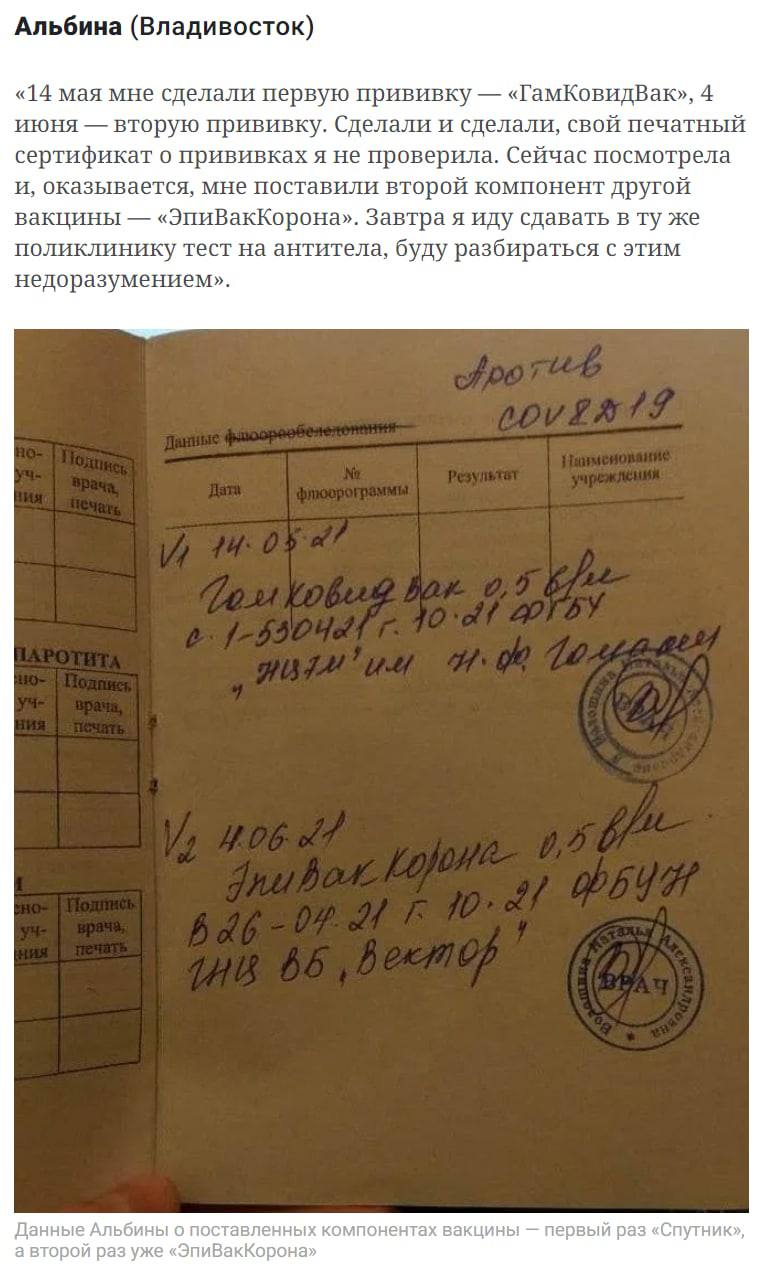 Альбина (Владивосток)
«14 мая мне сделали первую прививку — «ГамКовидВак», 4
июня — вторую прививку. Сделали и сделали, свой печатный
сертификат о прививках я не проверила. Сейчас посмотрела
и, оказывается, мне поставили второй компонент другой
вакцины — «ЭпиВакКорона». Завтра я иду сдавать в ту же
поликлинику тест на антитела, буду разбираться с этим
недоразумением».
но-
уч-
ния
Подпись
врача,
печать
ПАРОТИТА
но-
уч-
ния
Подпись
врача,
печать
но-
уч-
ния
Подпись
врача,
печать
Против
COVID19
Данные флюорообследования
Дата
№
флюорограммы
Результат
Наименование
учреждения
V1 14.05.21
Гамковидвак 0,5 в/м
с. 1-530421 г. 10.21 ФГБУ
им Н.Ф. Гамалеи
V2 4.06.21
ЭпиВакКорона 0,5 в/м
В26-04.21 г. 10.21 ФБУН
ГНЦ ВБ „Вектор"
Волошина Наталья Александровна
ВРАЧ
Данные Альбины о поставленных компонентах вакцины — первый раз «Спутник»,
а второй раз уже «ЭпиВакКорона»